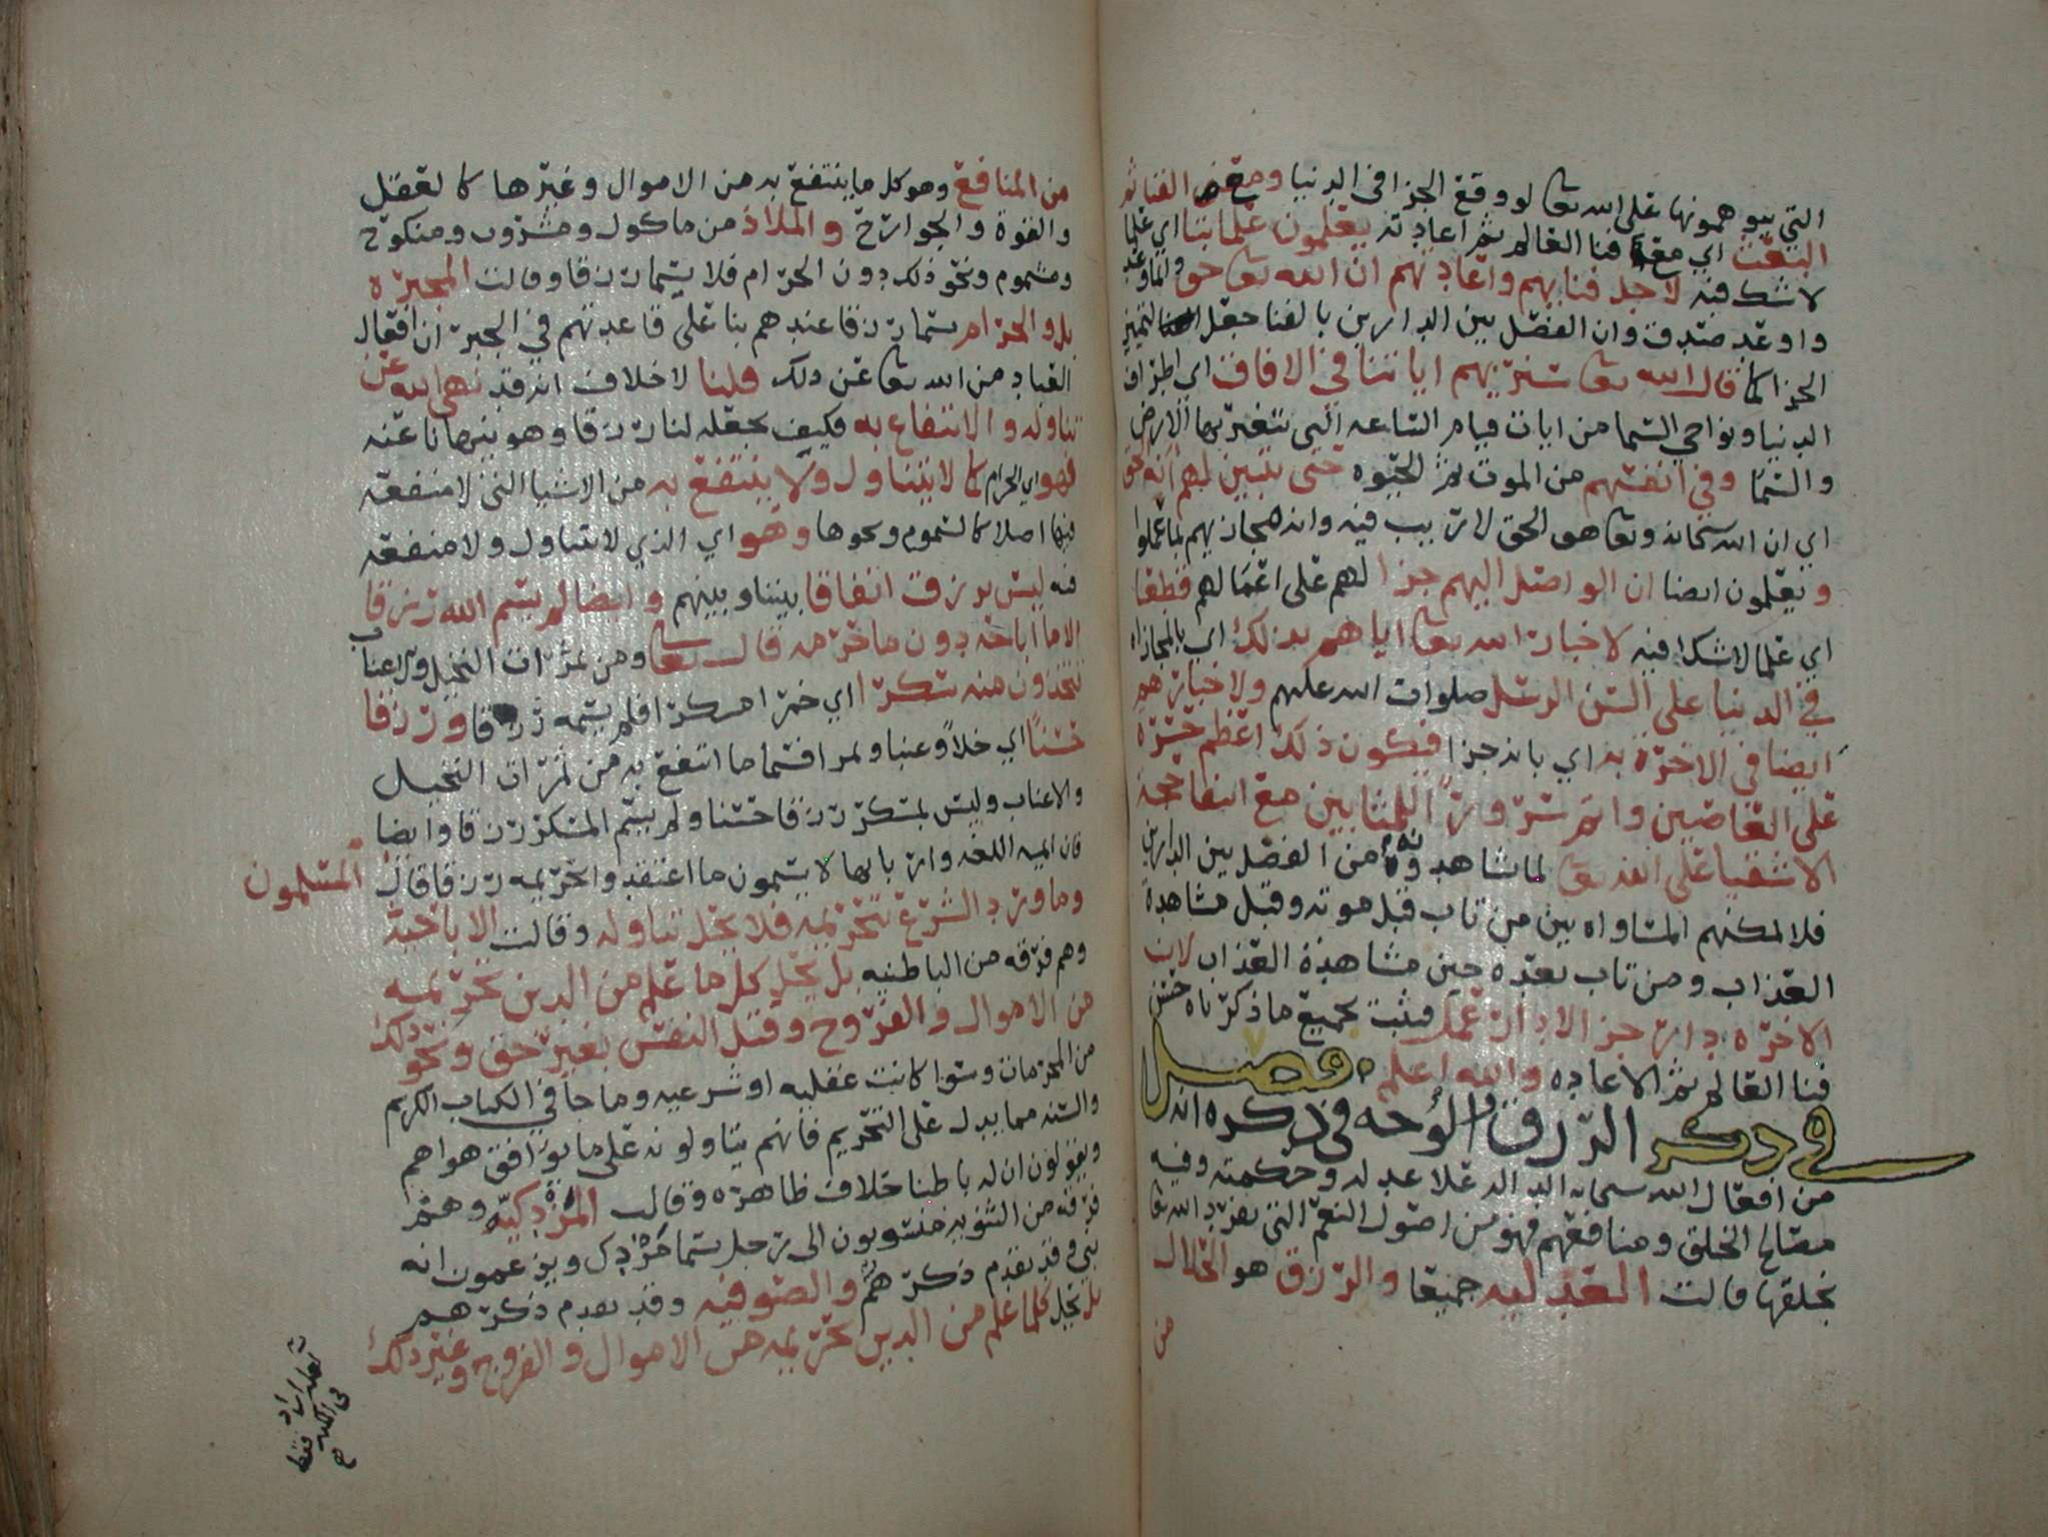 التي يتوهمونها على الله تعا لو وقع الجزا في الدنيا ومع الفنا ثم
البعث اي مع فنا العالم ثم اعادته يعلمون علما بتا اي علما
لا شك فيه لاجل فنايهم واعادتهم ان الله تعا حق وانما وعد
واوعد صدق وان الفصل بين الدارين بالفنا جعل لتمييز
الجزا كما قال الله تعا سنريهم اياتنا في الافاق اي اطراف
الدنيا ونواحي السما من ايات قيام الساعه التي تتغير بها الارض
والسما وفي انفسهم من الموت ثم الحيوه حتى يتبين لهم انه الحق
اي ان الله سبحانه وتعا هو الحق لا ريب فيه وانه مجازيهم بما عملوا
ويعلمون ايضا ان الواصل اليهم جزا لهم على اعمالهم قطعا
اي علما لا شك فيه لاخبار الله تعا اياهم بذلك اي بالمجازاه
في الدنيا على السن الرسل صلوات الله عليهم ولاخبارهم
ايضا في الاخرة به اي بانه جزا فيكون ذلك اعظم حسرة
على العاصين واتم سرورا للمثابين مع انتفا حجة
الاشقيا على الله تعا لما شاهدوه من الفصل بين الدارين
فلا يمكنهم المساواه بين من تاب قبل موته وقبل مشاهدة
العذاب ومن تاب بعده حين مشاهدة العذاب لان
الاخره دار جزا لا دار عمل فثبت بجميع ما ذكرناه حسن
فنا العالم ثم الاعاده والله اعلم فصل
في ذكر الرزق والوجه في ذكره انه
من افعال الله سبحانه الداله على عدله وحكمته وفيه
مصالح الخلق ومنافعهم فهو من اصول النعم التي يفرد الله تعا
بخلقها قالت العدليه جميعا والرزق هو الحلال
من
من المنافع وهو كل ما ينتفع به من الاموال وغيرها كالعقل
والقوة والجوارح والملاذ من ماكول ومشروب ومنكوح
ومشموم ونحو ذلك دون الحرام فلا يسما رزقا وقالت المجبره
بل والحرام يسما رزقا عندهم بنا على قاعدتهم في الجبر ان افعال
العباد من الله تعا عن ذلك قلنا لا خلاف انه قد نهى الله عن
تناوله والانتفاع به فكيف يجعله لنا رزقا وهو ينهانا عنه
فهو اي الحرام كما لا يتناول ولا ينتفع به من الاشيا التي لا منفعه
فيها اصلا كالسموم ونحوها وهو اي الذي لا يتناول ولا منفعه
فيه ليس برزق اتفاقا بيننا وبينهم وايضا لم يسم الله رزقا
الا ما اباحه دون ما حرمه قال تعا ومن ثمرات النخيل والاعناب
تتخذون منه سكرا اي خمرا مسكرا فلم يسمه رزقا ورزقا
حسنا اي خلا وعنبا وتمرا فسما ما انتفع به من ثمرات النخيل
والاعناب وليس بمسكر رزقا حسنا ولم يسم المسكر رزقا وايضا
فان ايمه اللغه واربابها لا يسمون ما اعتقدوا تحريمه رزقا قال المسلمون
وما ورد الشرع بتحريمه فلا يحل تناوله وقالت الاباحية
وهم فرقه من الباطنيه بل يحل كل ما علم من الدين تحريمه
من الاموال والفروج وقتل النفس بغير حق ونحو ذلك
من المحرمات وسوا كانت عقليه او شرعيه وما جا في الكتاب الكريم
والسنه مما يدل على التحريم فانهم يتاولونه على ما يوافق هواهم
ويقولون ان له باطنا خلاف ظاهره وقالت المزدكيه وهم
فرقه من الثنويه منسوبون الى رجل يسما مزدك ويزعمون انه
نبي وقد تقدم ذكرهم والصوفيه وقد تقدم ذكرهم
بل يحل كلما علم من الدين تحريمه من الاموال والفروج وغير ذلك